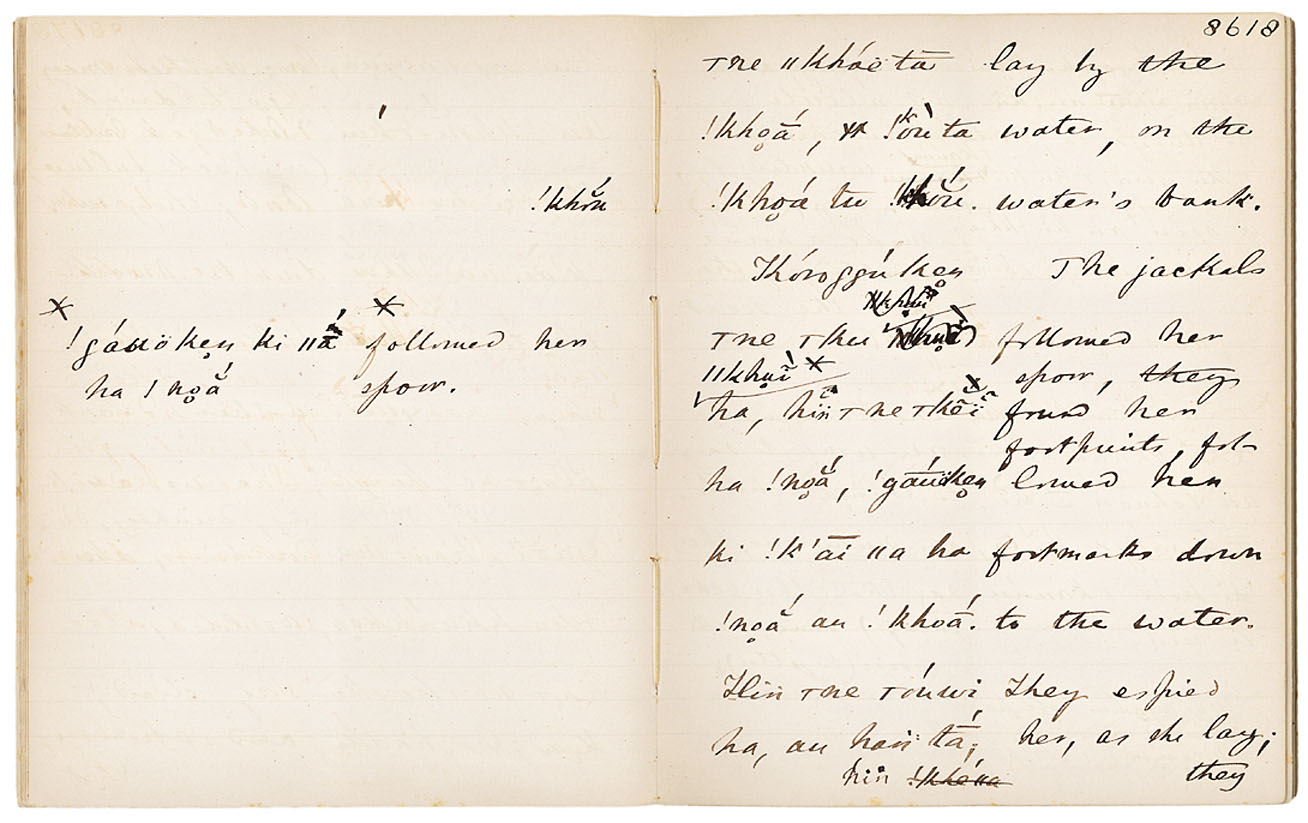 !khŏ́ŭ
!gáuökẹn ki ǁā́ followed her
ha !nọā́ spoor.
8618
ꞇne ǁkhóë tā lay by the
!khọā́, !kŏ́ŭ ta water, on the
!khọá tu water's bank.
Kóroggúken The jackals
ꞇne ꞇku followed her
ǁkhuĭ́ spoor, they
ha, hiṅ ꞇne ꞇkẽĩ found her
footprints, fol-
ha !nọā́, !gáuökẹn lowed her
ki !k'āi ǁa ha footmarks down
!nọā́ au !khoā́. to the water.
Hiṅ ꞇne ꞇúwi They espied
ha, au haṅ tā́; her, as she lay;
hiṅ they